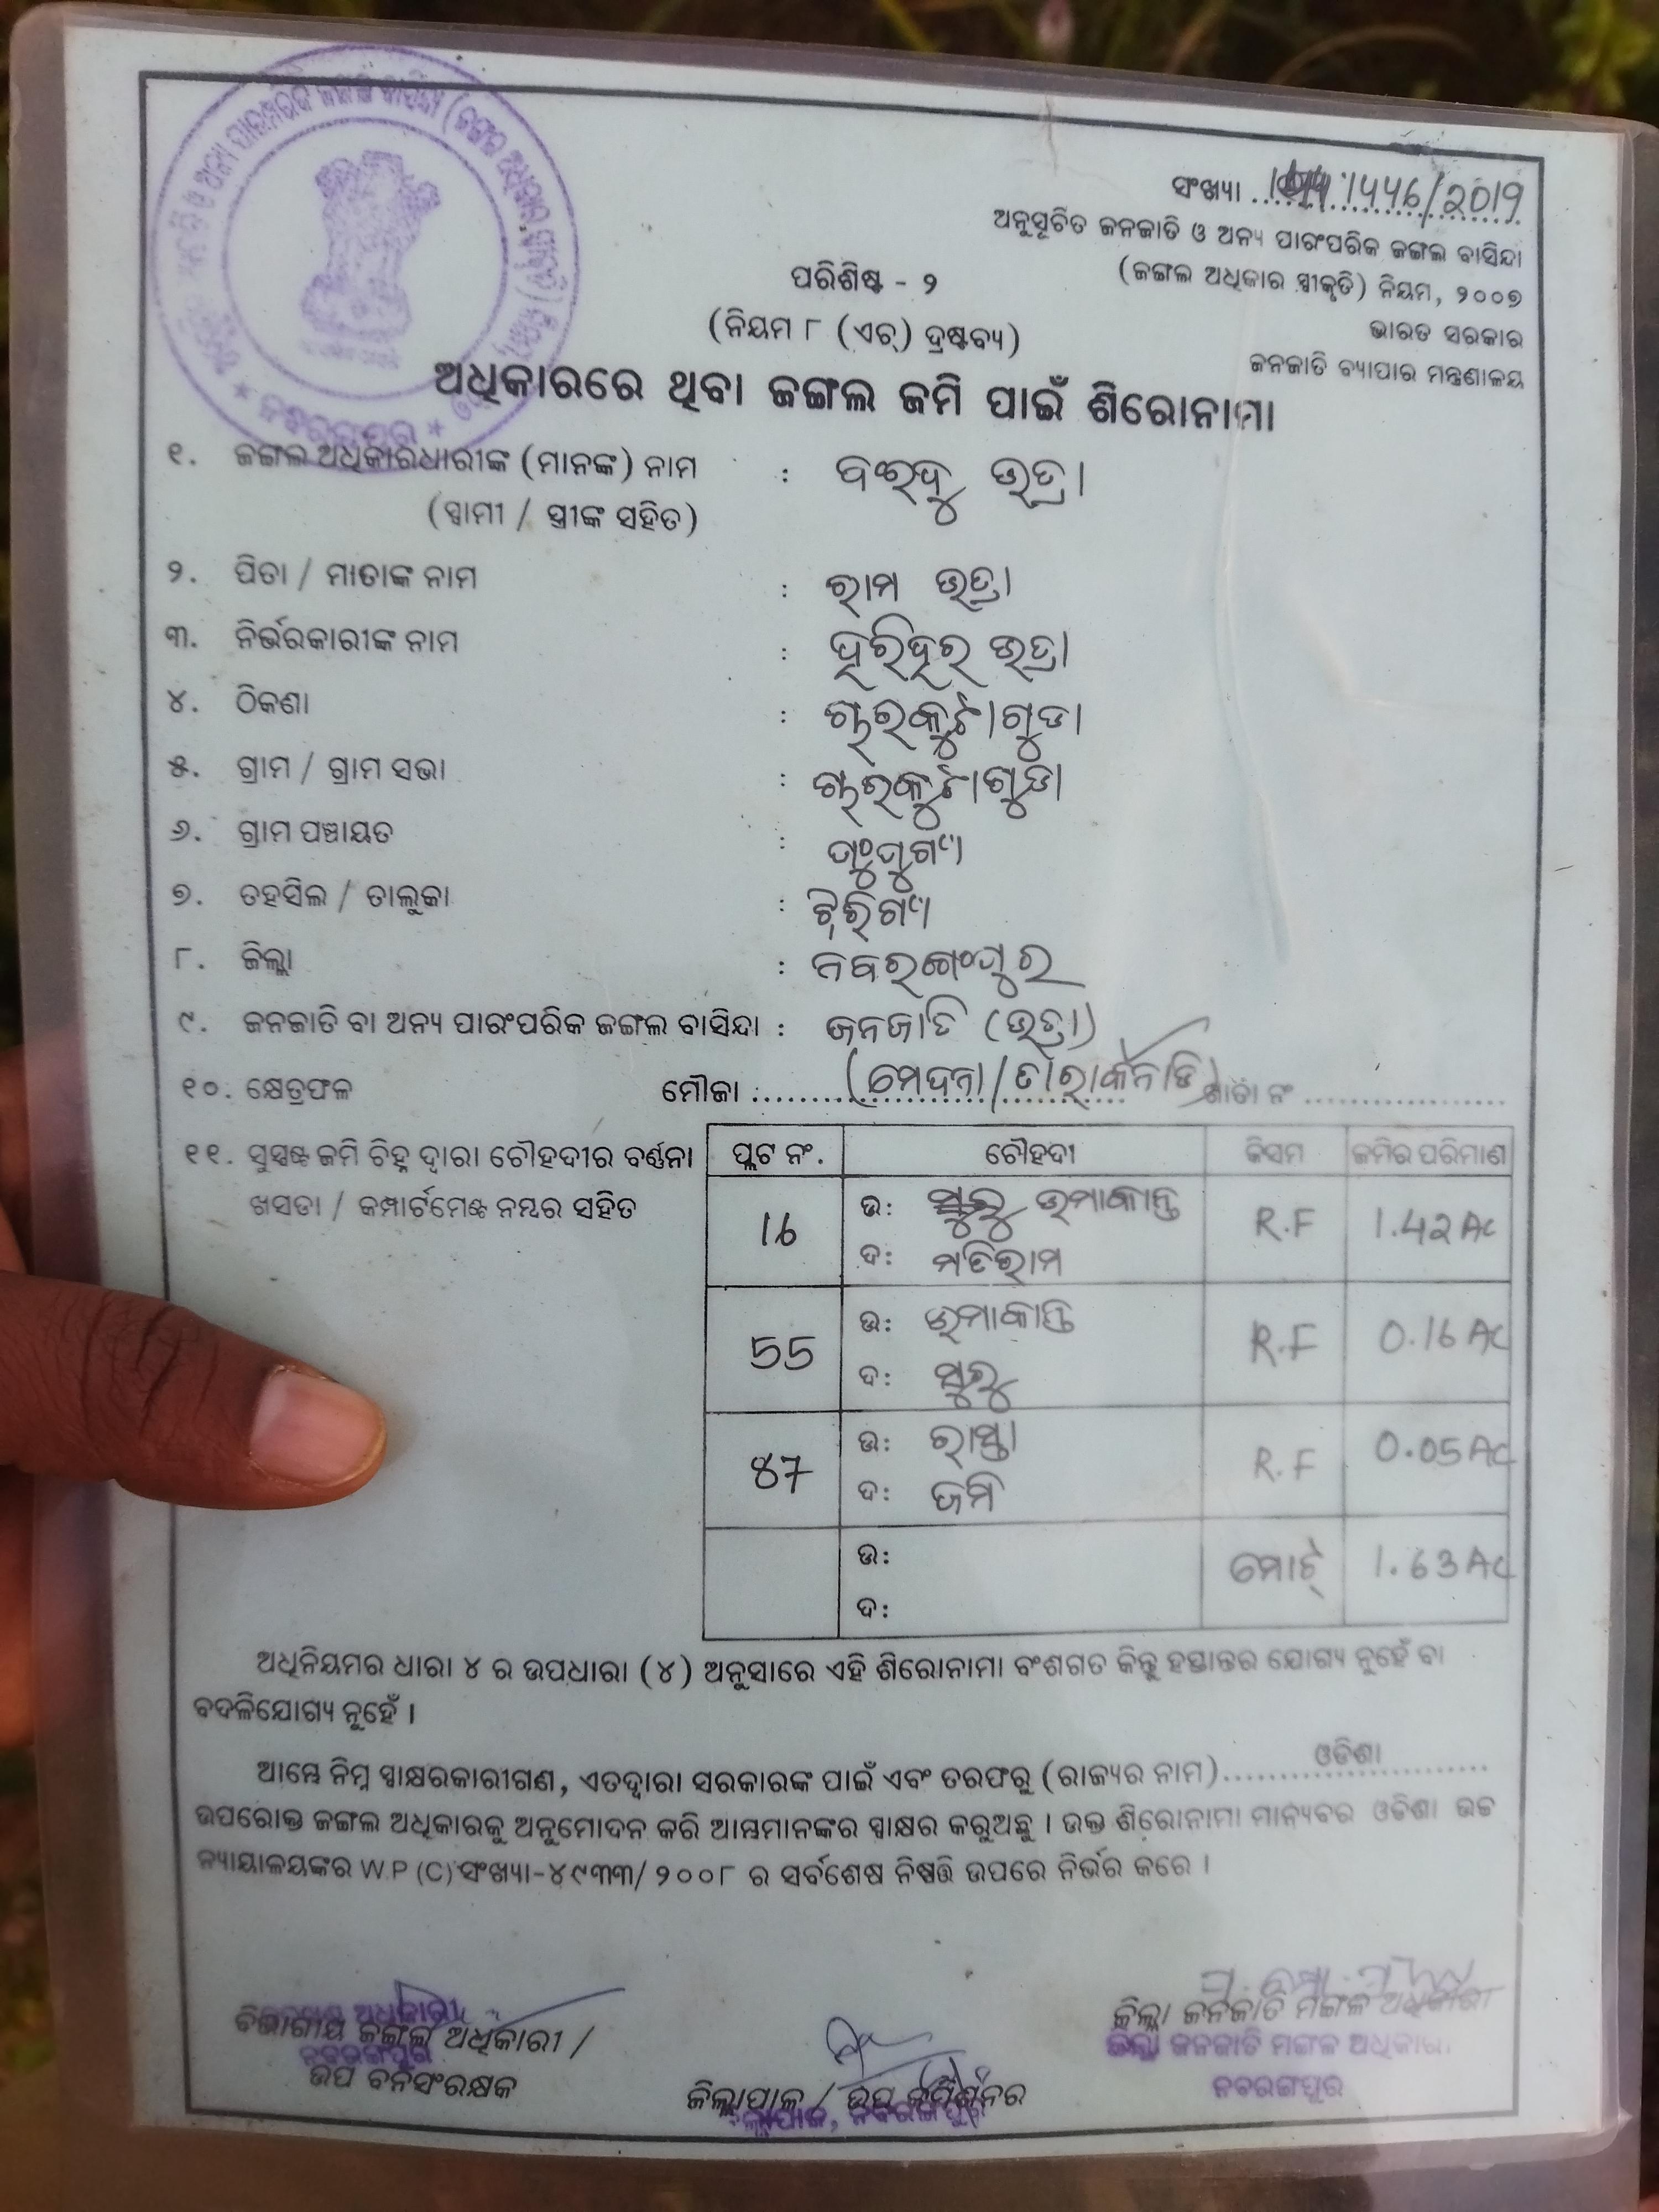 ସଂଖ୍ୟା 1556/2019
ଅନୁସୂଚିତ ଜନଜାତି ଓ ଅନ୍ୟ ପାରଂପରିକ ଜଙ୍ଗଲ ବାସିନ୍ଦା
(ଜଙ୍ଗଲ ଅଧିକାର ସ୍ୱୀକୃତି) ନିୟମ, ୨୦୦୭
ଭାରତ ସରକାର
ଜନଜାତି ବ୍ୟାପାର ମନ୍ତ୍ରଣାଳୟ
ପରିଶିଷ୍ଟ - ୨
(ନିୟମ ୮ (ଏଚ୍) ଦ୍ରଷ୍ଟବ୍ୟ)
ଅଧିକାରରେ ଥିବା ଜଙ୍ଗଲ ଜମି ପାଇଁ ଶିରୋନାମା
୧. ଜଙ୍ଗଲ ଅଧିକାରଧାରୀଙ୍କ (ମାନଙ୍କ) ନାମ :
(ସ୍ୱାମୀ / ସ୍ତ୍ରୀଙ୍କ ସହିତ)
୨. ପିତା / ମାତାଙ୍କ ନାମ : ରାମ ଭତ୍ରା
୩. ନିର୍ଭରକାରୀଙ୍କ ନାମ : ହରିହର ଭତ୍ରା
୪. ଠିକଣା :
୫. ଗ୍ରାମ / ଗ୍ରାମ ସଭା :
୬. ଗ୍ରାମ ପଞ୍ଚାୟତ :
୭. ତହସିଲ / ତାଲୁକା :
୮. ଜିଲ୍ଲା : ନବରଙ୍ଗପୁର
୯. ଜନଜାତି ବା ଅନ୍ୟ ପାରଂପରିକ ଜଙ୍ଗଲ ବାସିନ୍ଦା : ଜନଜାତି (ଭତ୍ରା)
୧୦. କ୍ଷେତ୍ରଫଳ ମୌଜା : ଖାତା ନଂ
୧୧. ସୁସ୍ପଷ୍ଟ ଜମି ଚିହ୍ନ ଦ୍ୱାରା ଚୌହଦୀର ବର୍ଣ୍ଣନା
ଖସଡା / କମ୍ପାର୍ଟମେଣ୍ଟ ନମ୍ବର ସହିତ
ପ୍ଲଟ ନଂ. ଚୌହଦୀ କିସମ ଜମିର ପରିମାଣ
16 ଉ: ଉମାକାନ୍ତ R.F 1.42 AC
ଦ: ମତିରାମ
55 ଉ: ଉମାକାନ୍ତ R.F 0.16 AC
ଦ: ସୁରୁ
87 ଉ: ରାସ୍ତା R.F 0.05 AC
ଦ: ଜମି
ଉ: ମୋଟ୍ 1.63 AC
ଦ:
ଅଧିନିୟମର ଧାରା ୪ ର ଉପଧାରା (୪) ଅନୁସାରେ ଏହି ଶିରୋନାମା ବଂଶଗତ କିନ୍ତୁ ହସ୍ତାନ୍ତର ଯୋଗ୍ୟ ନୁହେଁ ବା
ବଦଳିଯୋଗ୍ୟ ନୁହେଁ ।
ଆମ୍ଭେ ନିମ୍ନ ସ୍ୱାକ୍ଷରକାରୀଗଣ, ଏତଦ୍ୱାରା ସରକାରଙ୍କ ପାଇଁ ଏବଂ ତରଫରୁ (ରାଜ୍ୟର ନାମ) ଓଡିଶା
ଉପରୋକ୍ତ ଜଙ୍ଗଲ ଅଧିକାରକୁ ଅନୁମୋଦନ କରି ଆମ୍ଭମାନଙ୍କର ସ୍ୱାକ୍ଷର କରୁଅଛୁ । ଉକ୍ତ ଶିରୋନାମା ମାନ୍ୟବର ଓଡିଶା ଉଚ୍ଚ
ନ୍ୟାୟାଳୟଙ୍କର W.P (C) ସଂଖ୍ୟା-୪୯୩୩/୨୦୦୮ ର ସର୍ବଶେଷ ନିଷ୍ପତ୍ତି ଉପରେ ନିର୍ଭର କରେ ।
ବିଭାଗୀୟ ଜଙ୍ଗଲ ଅଧିକାରୀ /
ଉପ ବନସଂରକ୍ଷକ
ଜିଲ୍ଲାପାଳ / ଉପ କମିଶନର
ଜିଲ୍ଲାପାଳ, ନବରଙ୍ଗପୁର
ଜିଲ୍ଲା ଜନଜାତି ମଙ୍ଗଳ ଅଧିକାରୀ
ଜିଲ୍ଲା ଜନଜାତି ମଙ୍ଗଳ ଅଧିକାରୀ
ନବରଙ୍ଗପୁର